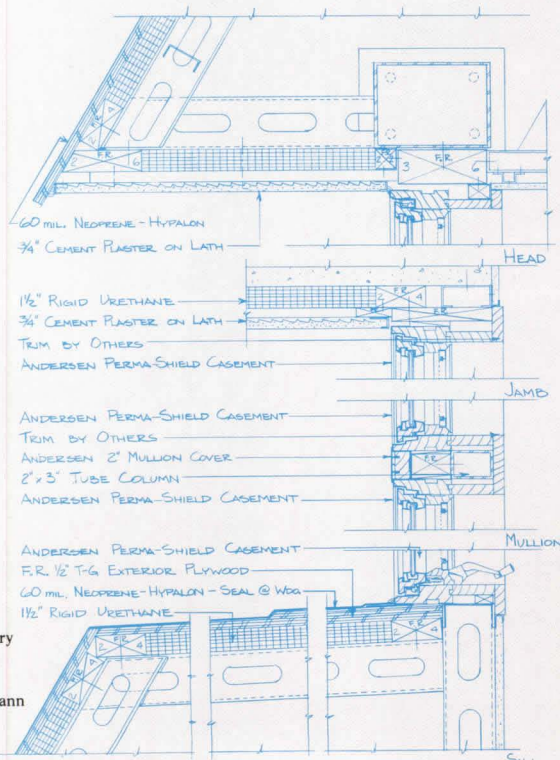 F.R.
2
4
2
6
3
F.R.
6
60 MIL. NEOPRENE-HYPALON
3/4" CEMENT PLASTER ON LATH
HEAD
1½" RIGID URETHANE
F.R.
2
4
3/4" CEMENT PLASTER ON LATH
F.R.
TRIM BY OTHERS
ANDERSEN PERMA-SHIELD CASEMENT
JAMB
ANDERSEN PERMA-SHIELD CASEMENT
TRIM BY OTHERS
ANDERSEN 2" MULLION COVER
F.R.
2" x 3" TUBE COLUMN
ANDERSEN PERMA-SHIELD CASEMENT
MULLION
ANDERSEN PERMA-SHIELD CASEMENT
F.R. ½" T-G EXTERIOR PLYWOOD
60 MIL. NEOPRENE-HYPALON - SEAL @ WDG
1½" RIGID URETHANE
F.R.
2
4
F.R.
2
4
F.R.
2
4
ry
ann